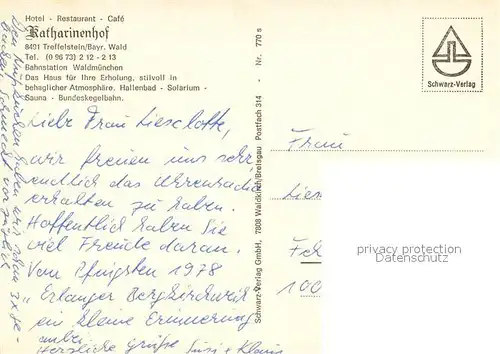 Hotel - Restaurant - Café
Katharinenhof
8491 Treffelstein/Bayr. Wald
Tel. (0 96 73) 2 12 - 2 13
Bahnstation Waldmünchen
Das Haus für Ihre Erholung, stilvoll in
behaglicher Atmosphäre, Hallenbad - Solarium -
Sauna - Bundeskegelbahn.
Liebe Frau Lieselotte,
wir freuen uns sehr,
endlich das
erhalten zu haben.
Hoffentlich haben Sie
viel Freude daran.
Von Pfingsten 1978
"Erlanger Bergkirchweih
ein kleine Erinnerung
anbei.
Herzliche Grüße Susi + Klaus
haben wir schon 3x ge-
schmeckt vorzüglich
Schwarz-Verlag GmbH, 7808 Waldkirch/Breisgau Postfach 314 - Nr. 770 s
Schwarz-Verlag
Frau
Lies
100
privacy protection
Datenschutz